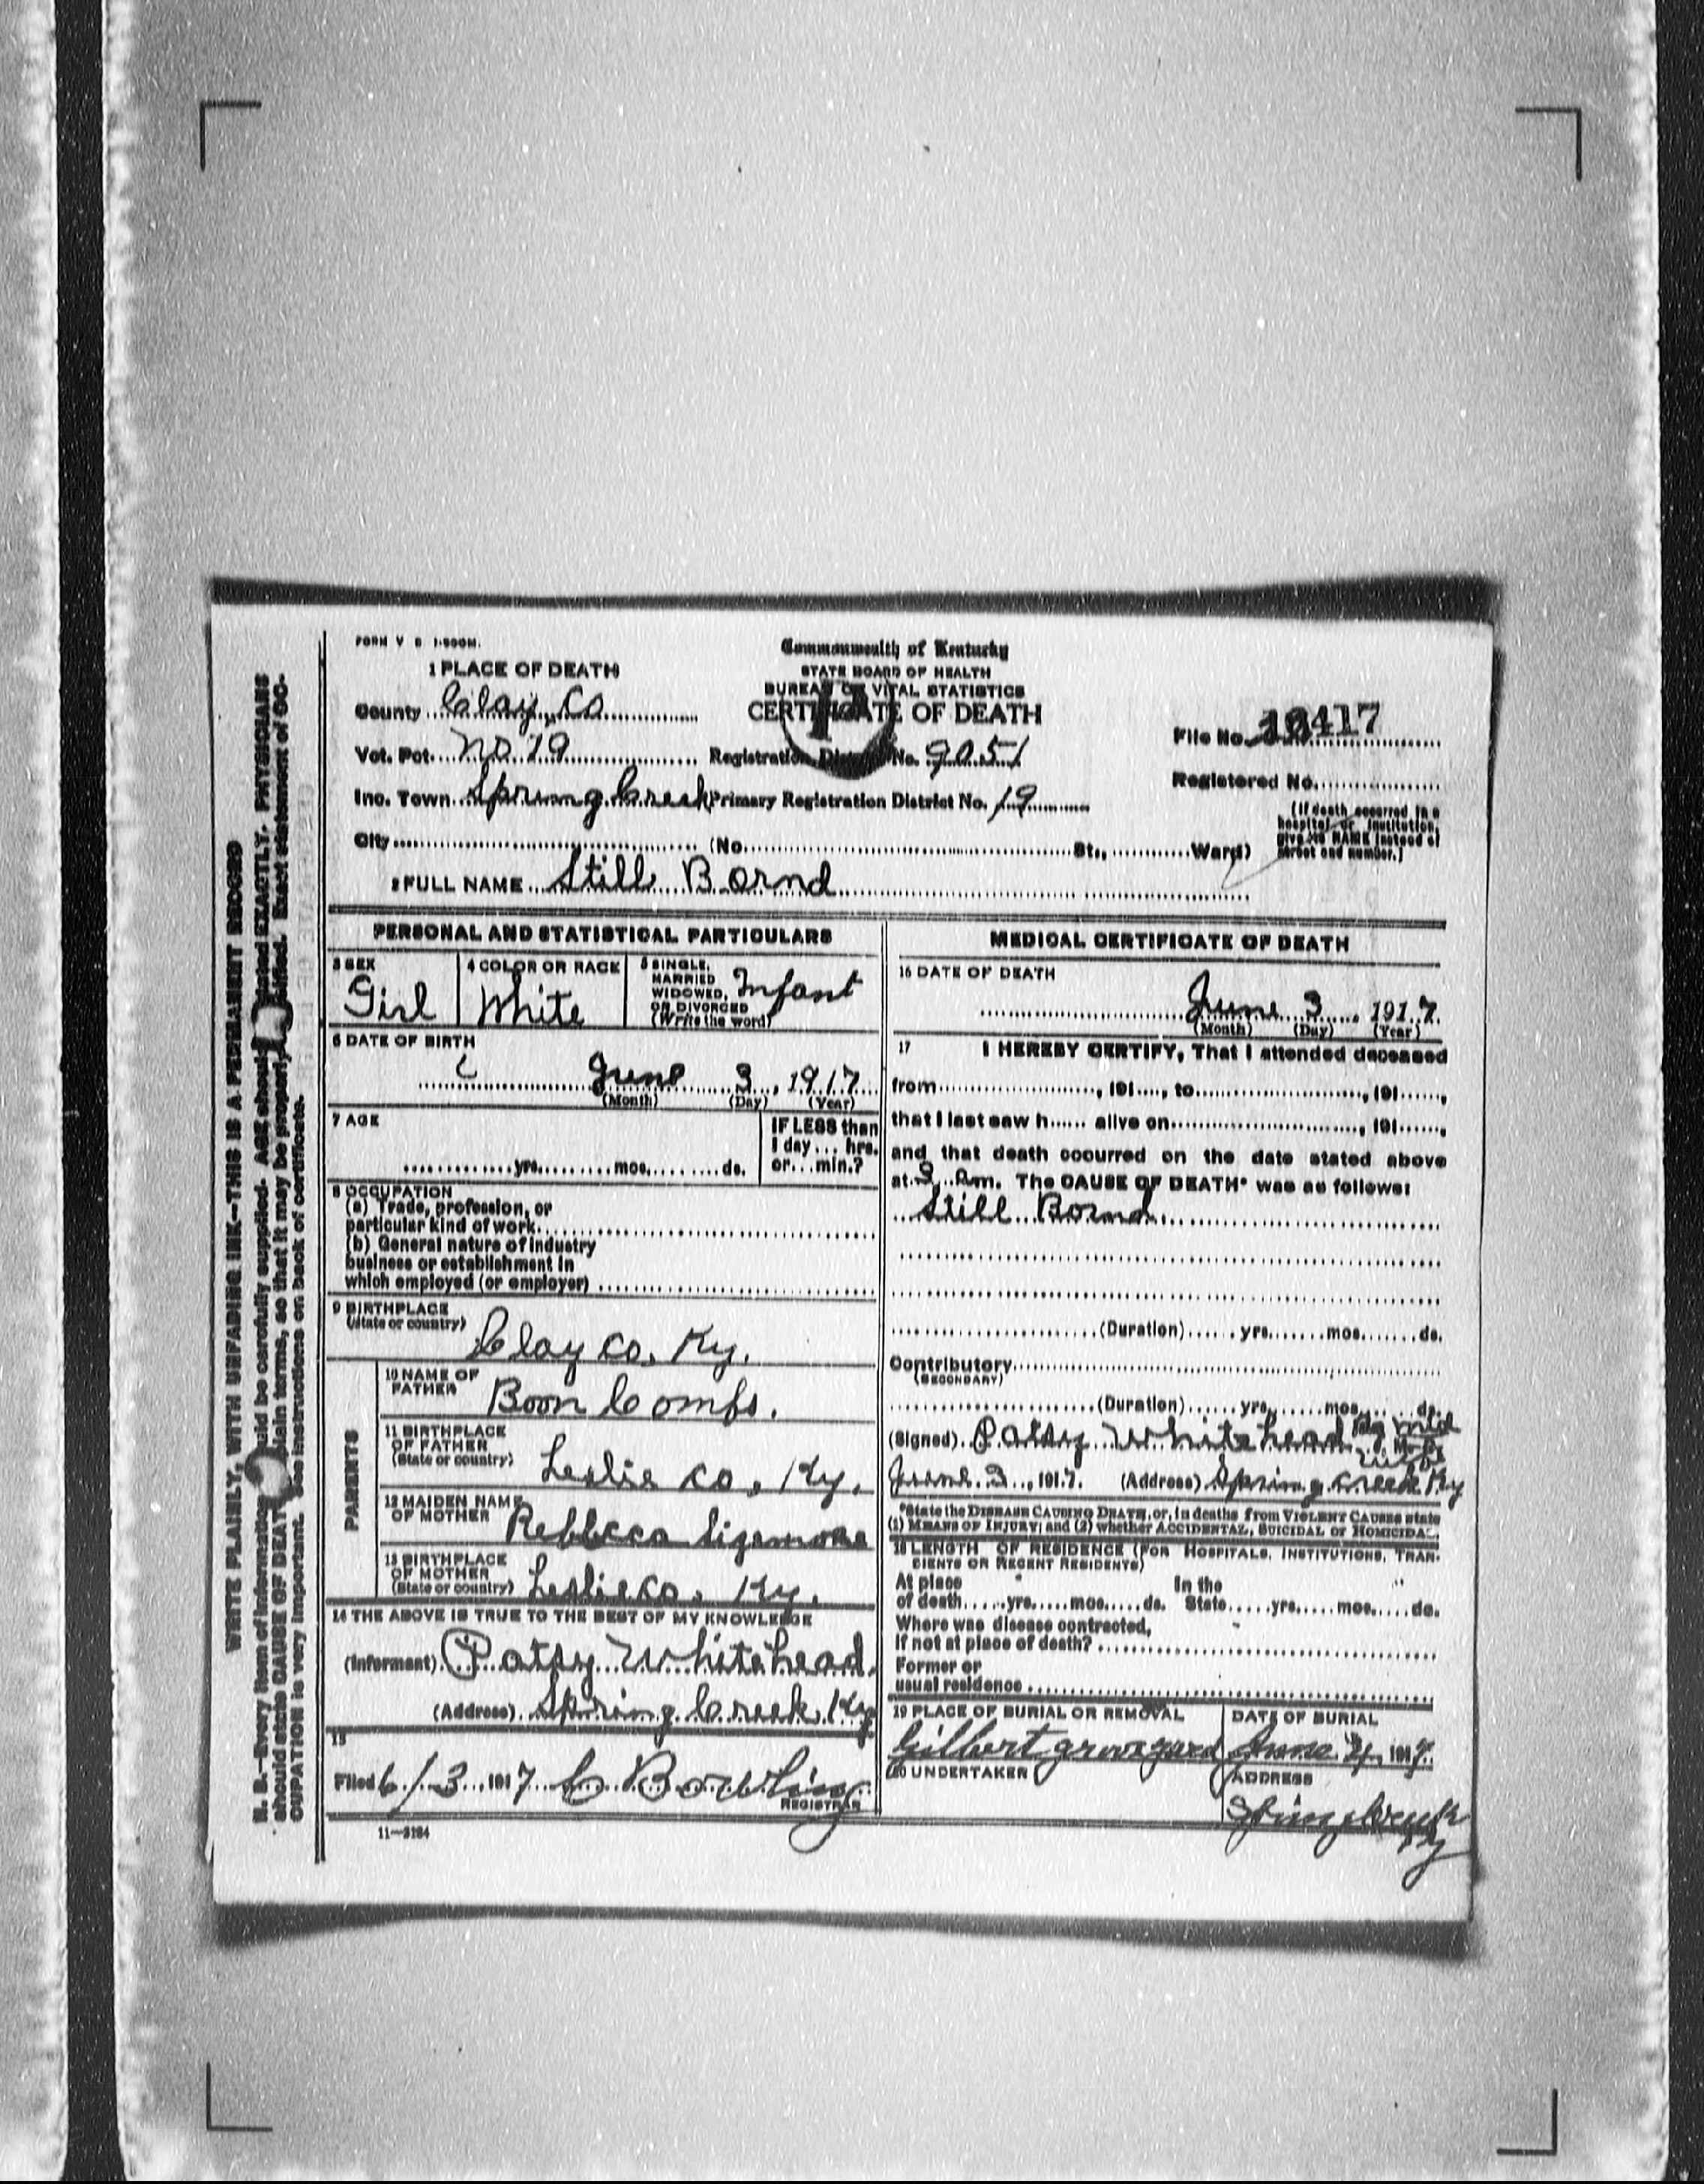 FORM V S 1-500M.
Commonwealth of Kentucky
STATE BOARD OF HEALTH
BUREAU OF VITAL STATISTICS
CERTIFICATE OF DEATH
1 PLACE OF DEATH
County Clay, Co
Vot. Pct. No. 19 Registration District No. 9051
Inc. Town Spring Creek Primary Registration District No. 19
City (No. St., Ward)
File No. 417
Registered No.
(If death occurred in a
hospital or institution,
give its NAME instead of
street and number.)
2 FULL NAME Still Bornd
PERSONAL AND STATISTICAL PARTICULARS
3 SEX
Girl
4 COLOR OR RACE
White
5 SINGLE,
MARRIED
WIDOWED,
OR DIVORCED
(Write the word)
Infant
6 DATE OF BIRTH
June 3, 1917
(Month) (Day) (Year)
7 AGE
yrs. mos. ds.
IF LESS than
1 day... hrs.
or... min.?
8 OCCUPATION
(a) Trade, profession, or
particular kind of work
(b) General nature of industry
business or establishment in
which employed (or employer)
9 BIRTHPLACE
(State or country)
Clay Co. Ky.
PARENTS
10 NAME OF
FATHER
Boon Combs.
11 BIRTHPLACE
OF FATHER
(State or country)
Leslie Co, Ky.
12 MAIDEN NAME
OF MOTHER
Rebbeca Sizemore
13 BIRTHPLACE
OF MOTHER
(State or country)
Leslie Co. Ky.
14 THE ABOVE IS TRUE TO THE BEST OF MY KNOWLEDGE
(Informant) Patsy Whitehead.
(Address) Spring Creek Ky
15
Filed 6/3, 1917 C Bowling
REGISTRAR
11-3184
MEDICAL CERTIFICATE OF DEATH
16 DATE OF DEATH
June 3, 1917.
(Month) (Day) (Year)
17 I HEREBY CERTIFY, That I attended deceased
from , 191 , to , 191 ,
that I last saw h alive on , 191 ,
and that death occurred on the date stated above
at m. The CAUSE OF DEATH* was as follows:
Still Bornd
(Duration) yrs. mos. ds.
Contributory
(SECONDARY)
(Duration) yrs. mos. ds.
(Signed) Patsy Whitehead
June 3, 1917. (Address) Spring Creek Ky
*State the DISEASE CAUSING DEATH, or, in deaths from VIOLENT CAUSES state
(1) MEANS OF INJURY; and (2) whether ACCIDENTAL, SUICIDAL or HOMICIDAL.
18 LENGTH OF RESIDENCE (FOR HOSPITALS, INSTITUTIONS, TRAN-
SIENTS OR RECENT RESIDENTS)
At place In the
of death yrs. mos. ds. State yrs. mos. ds.
Where was disease contracted,
if not at place of death?
Former or
usual residence
19 PLACE OF BURIAL OR REMOVAL
Gilbert graveyard
DATE OF BURIAL
June 4, 1917.
20 UNDERTAKER
ADDRESS
Spring Creek
Ky
WRITE PLAINLY, WITH UNFADING INK—THIS IS A PERMANENT RECORD
N. B.—Every item of information should be carefully supplied. AGE should be stated EXACTLY. PHYSICIANS
should state CAUSE OF DEATH in plain terms, so that it may be properly classified. Exact statement of OC-
CUPATION is very important. See instructions on back of certificate.